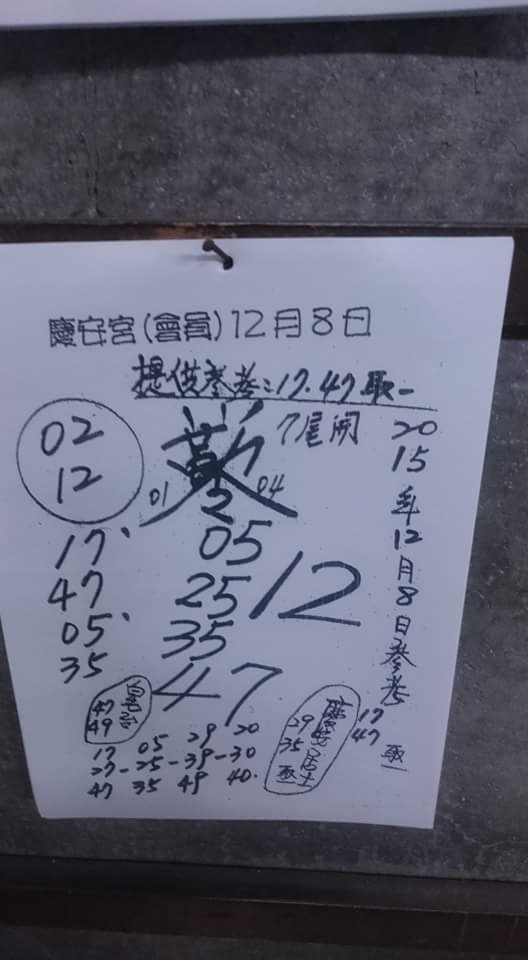 慶安宮(會員)12月8日
提供參考:17.47取一
7尾開
02
12
01
2
04
17
47
05
35
05
25
35
12
47
2015年12月8日參考
17
47
取一
47
49
17 05 29 20
27-25-39-30
47 35 49 40
29
35